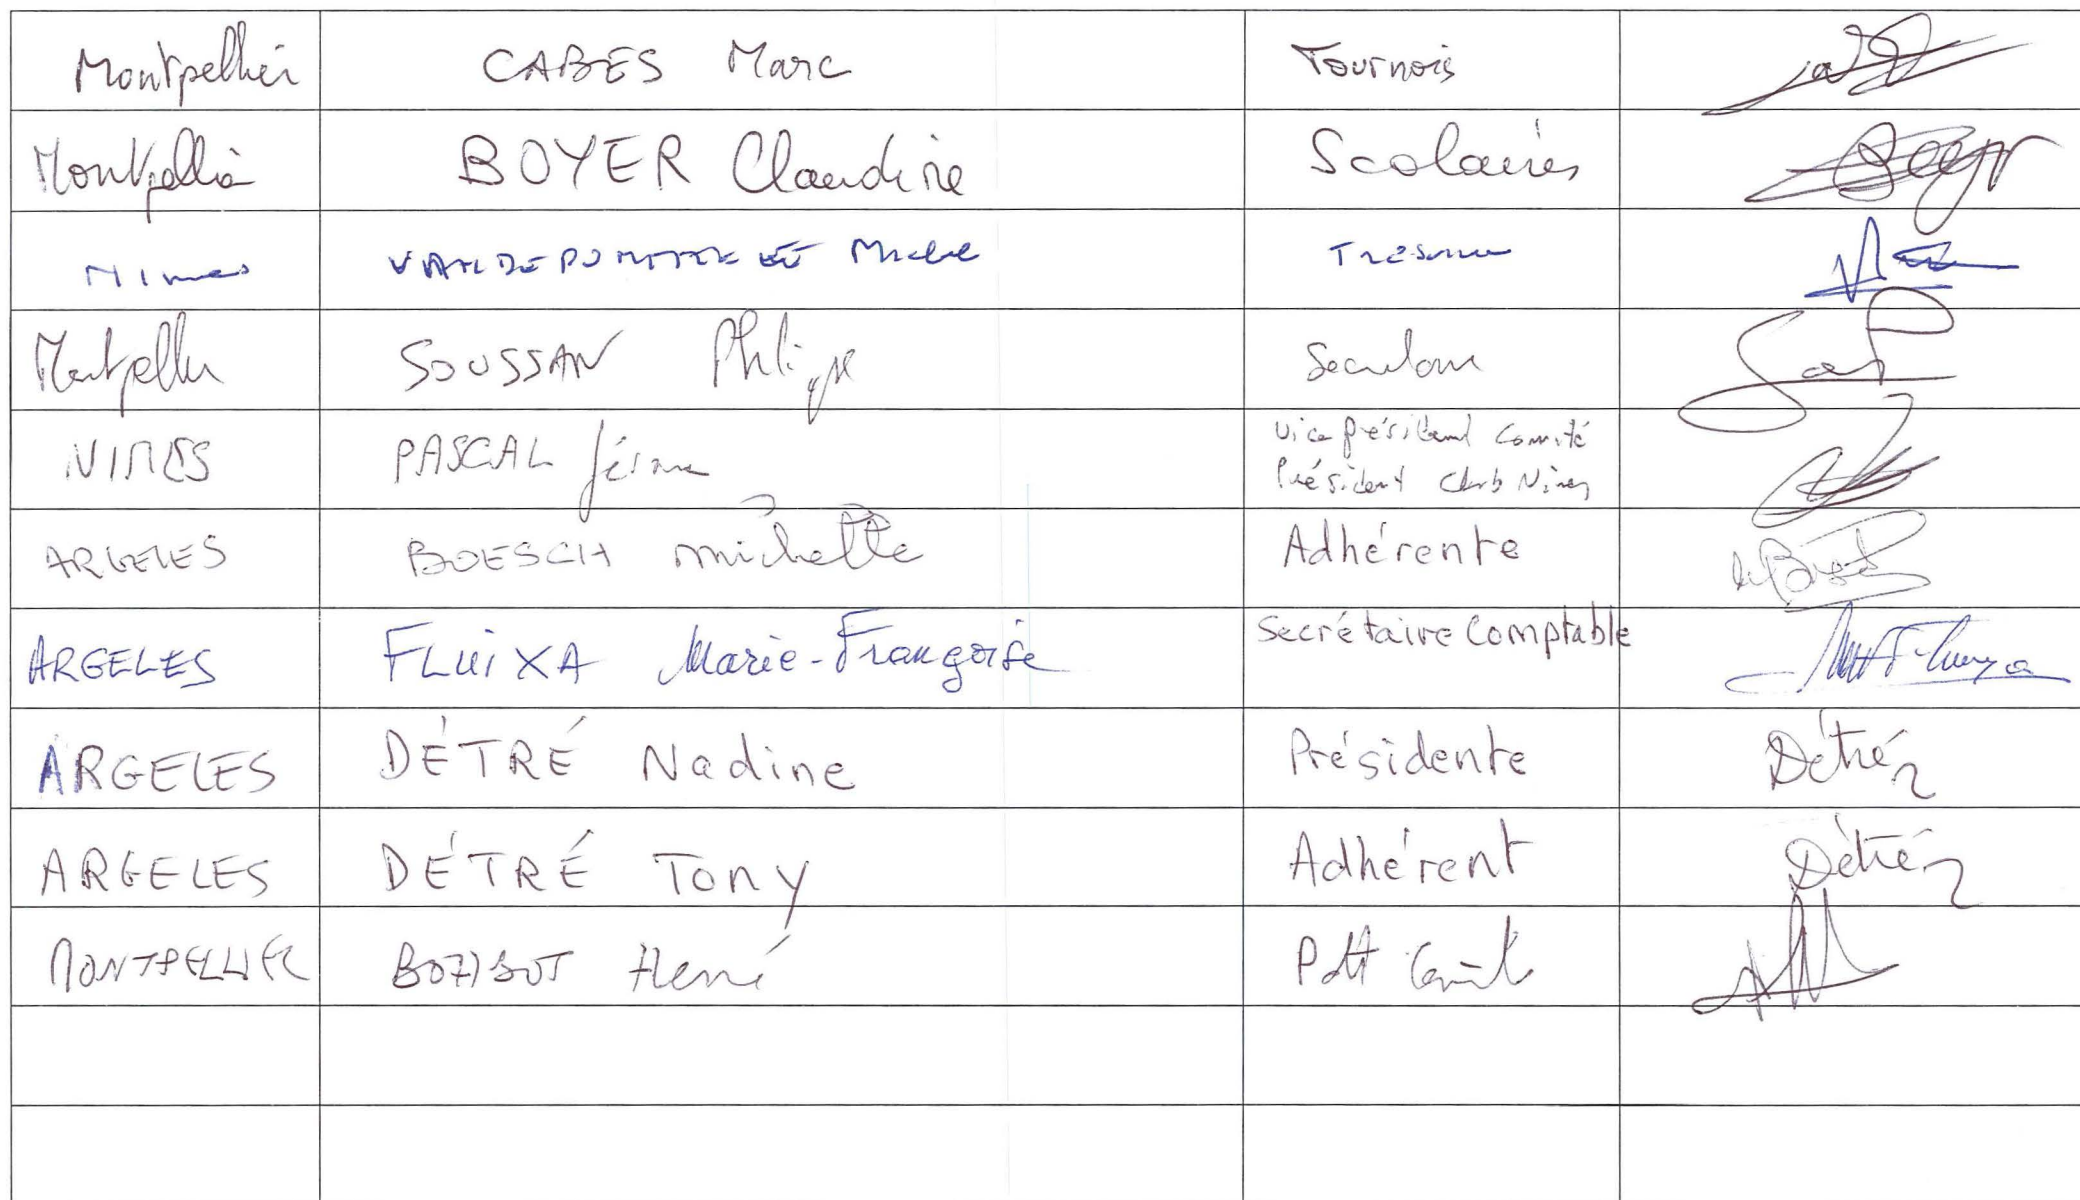 Montpellier CABES Marc Tournois
Montpellier BOYER Claudine Scolaires Boyer
Nimes Michel Tresorier
Montpellier SOUSSAN Philippe Secretaire
NIMES PASCAL Jérome Vice président Comité
Président Club Nimes
ARGELES BOESCH Michette Adhérente
ARGELES FLUIXA Marie-Françoise Secrétaire Comptable
ARGELES DÉTRÉ Nadine Présidente Détré
ARGELES DÉTRÉ Tony Adhérent Détré
MONTPELLIER Hervé Pdt Comité